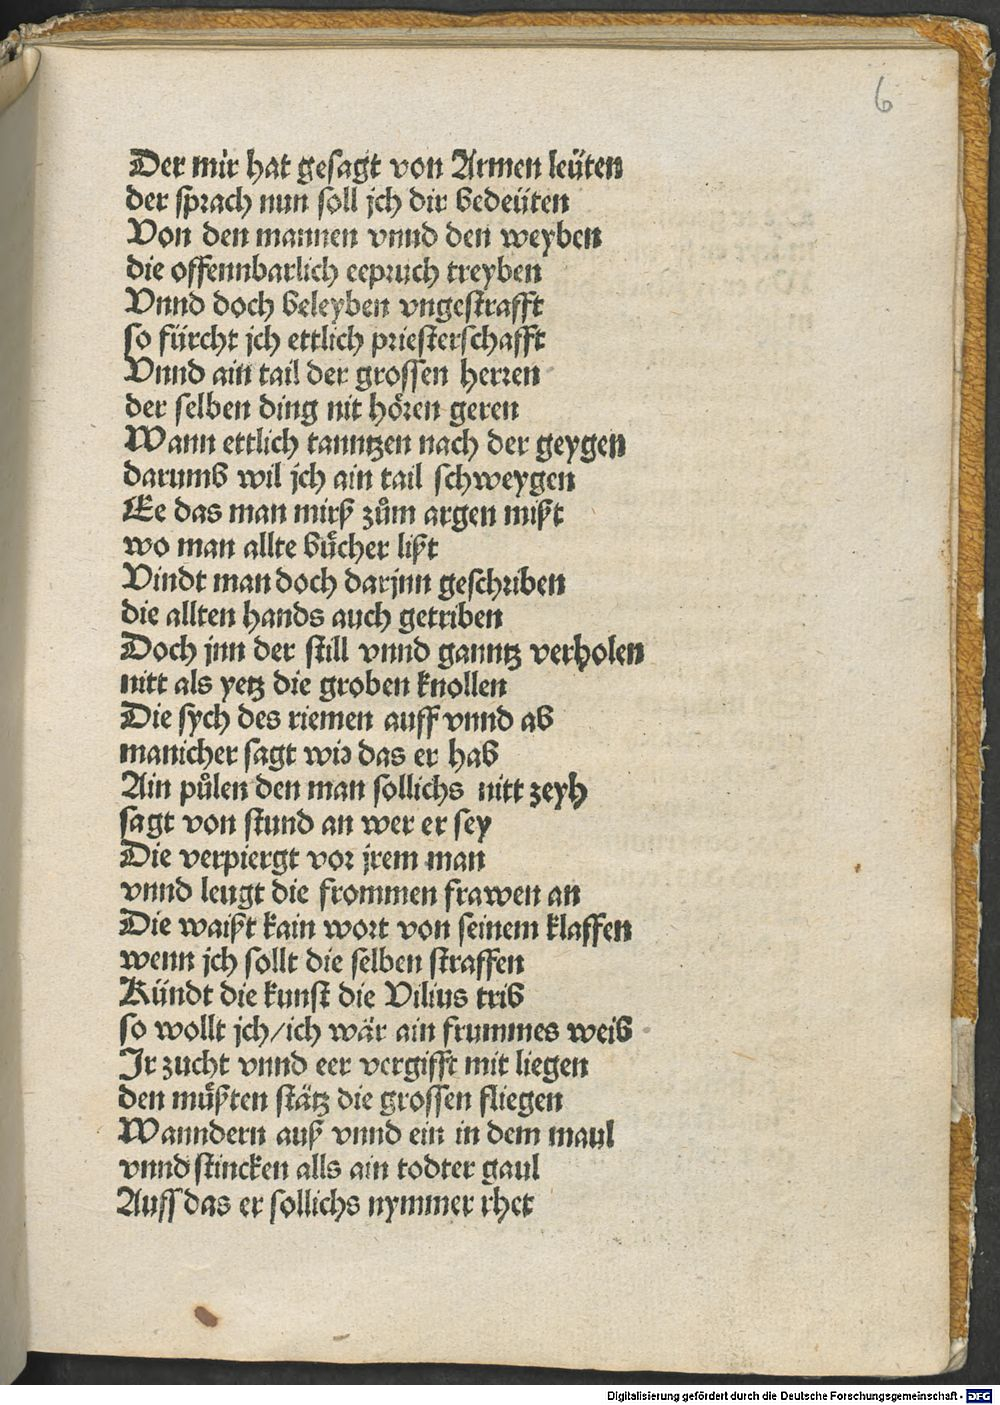 6
Der mir hat gesagt von Armen leüten
der sprach nun soll jch dir bedeüten
Von den mannen vnnd den weyben
die offennbarlich eepruch treyben
Vnnd doch beleyben vngestrafft
so fürcht jch ettlich priesterschafft
Vnnd ain tail der grossen herren
der selben ding nit hören geren
Wann ettlich tanntzen nach der geygen
darumb wil jch ain tail schweygen
Ee das man mirß zům argen mißt
wo man allte bücher lißt
Vindt man doch darjnn geschriben
die allten hands auch getriben
Doch jnn der still vnnd ganntz verholen
nitt als yetz die groben knollen
Die sych des riemen auff vnnd ab
manicher sagt wie das er hab
Ain půlen den man sollichs nitt zeyh
sagt von stund an wer er sey
Die verpiergt vor jrem man
vnnd leugt die frommen frawen an
Die waißt kain wort von seinem klaffen
wenn jch sollt die selben straffen
Kündt die kunst die Vilius trib
so wollt jch/ich wär ain frummes weib
Ir zucht vnnd eer vergifft mit liegen
den müßten stätz die grossen fliegen
Wanndern auß vnnd ein in dem maul
vnnd stincken alls ain todter gaul
Auff das er sollichs nymmer rhet
Digitalisierung gefördert durch die Deutsche Forschungsgemeinschaft - DFG